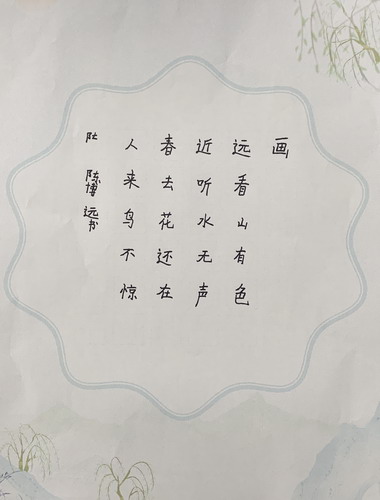 画
远看山有色
近听水无声
春去花还在
人来鸟不惊
陈博远书